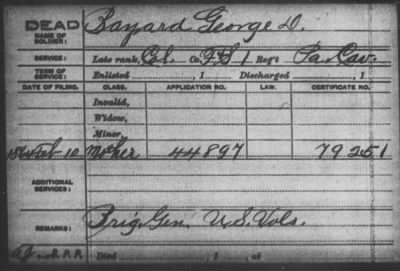 DEAD
NAME OF SOLDIER: Bayard George D.
SERVICE: Late rank, Col. Co. F&S 1 Reg't Pa. Cav.
TERM OF SERVICE: Enlisted , 1 Discharged , 1
DATE OF FILING. CLASS. APPLICATION NO. LAW. CERTIFICATE NO.
Invalid,
Widow,
Minor,
10 Mother 44897 79251
ADDITIONAL SERVICES:
Brig. Gen. U.S. Vols.
REMARKS:
Died , 1 , at